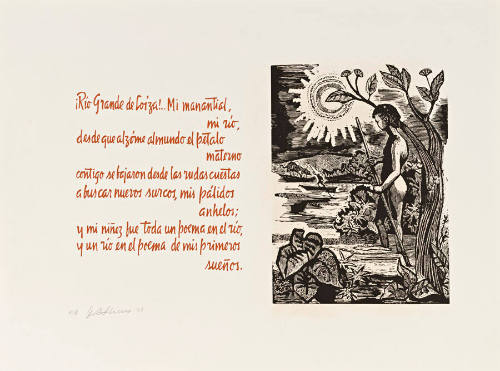 ¡Río Grande de Loíza!.. Mi manantial,
mi río,
desde que alzóme al mundo el pétalo
materno
contigo se bajaron desde las rudas cuestas
a buscar nuevos surcos, mis pálidos
anhelos;
y mi niñez fue toda un poema en el río,
y un río en el poema de mis primeros
sueños.